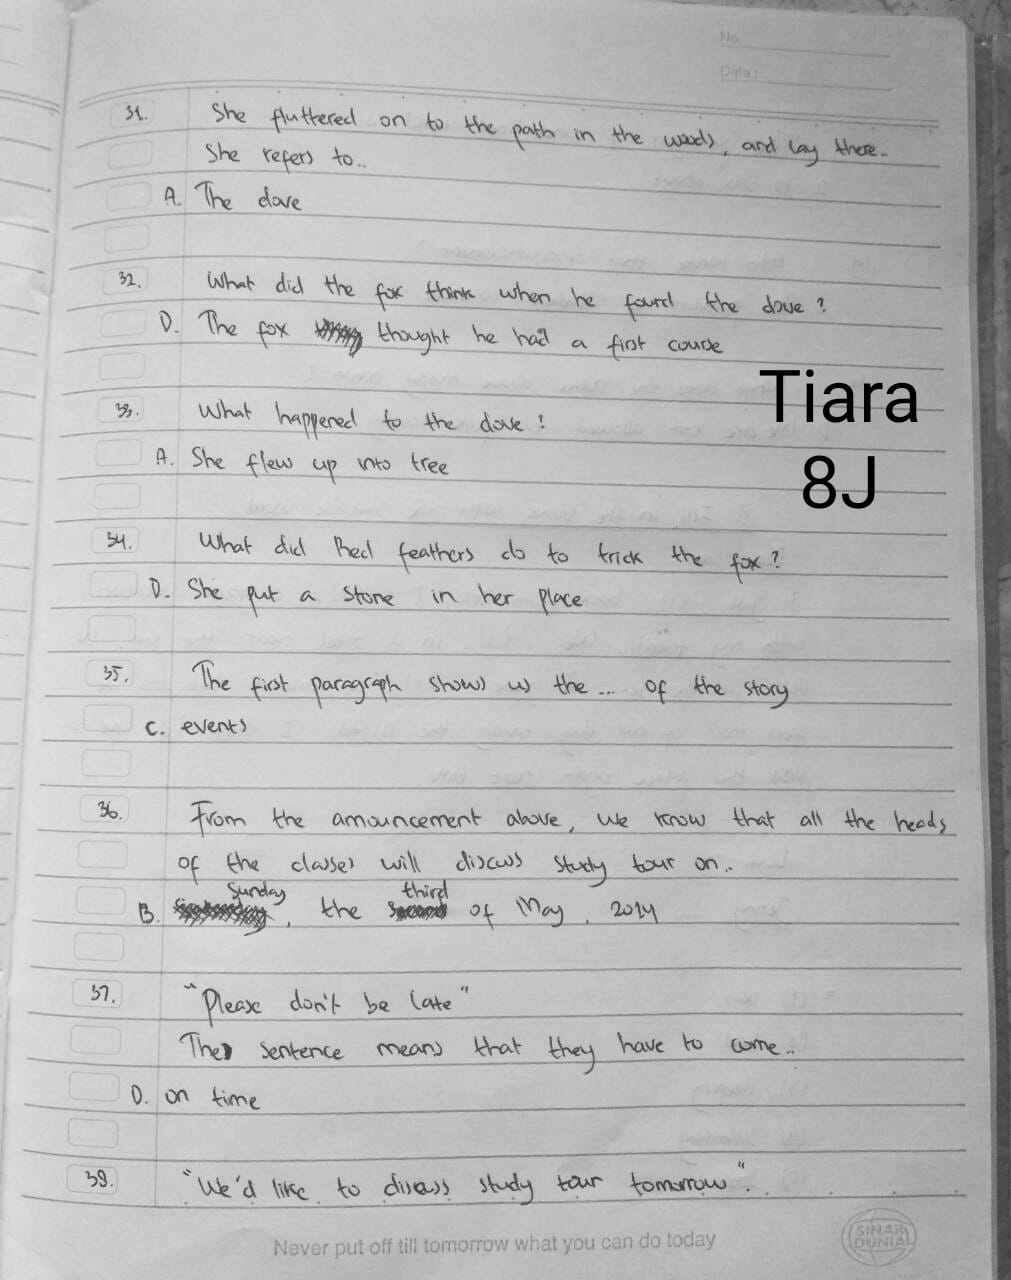 No
Date:
31. She fluttered on to the path in the woods, and lay there..
She refers to..
A. The dove
32. What did the fox think when he found the dove?
D. The fox thought he had a first course
33. What happened to the dove?
A. She flew up into tree
Tiara
8J
34. What did Red feathers do to trick the fox?
D. She put a stone in her place
35. The first paragraph shows us the ... of the story
C. events
36. From the announcement above, we know that all the heads
of the classes will discuss study tour on..
B. Sunday, the third of May, 2014
37. "Please don't be late"
The sentence means that they have to come..
D. on time
38. "We'd like to discuss study tour tomorrow".
Never put off till tomorrow what you can do today
SINAR
DUNIA